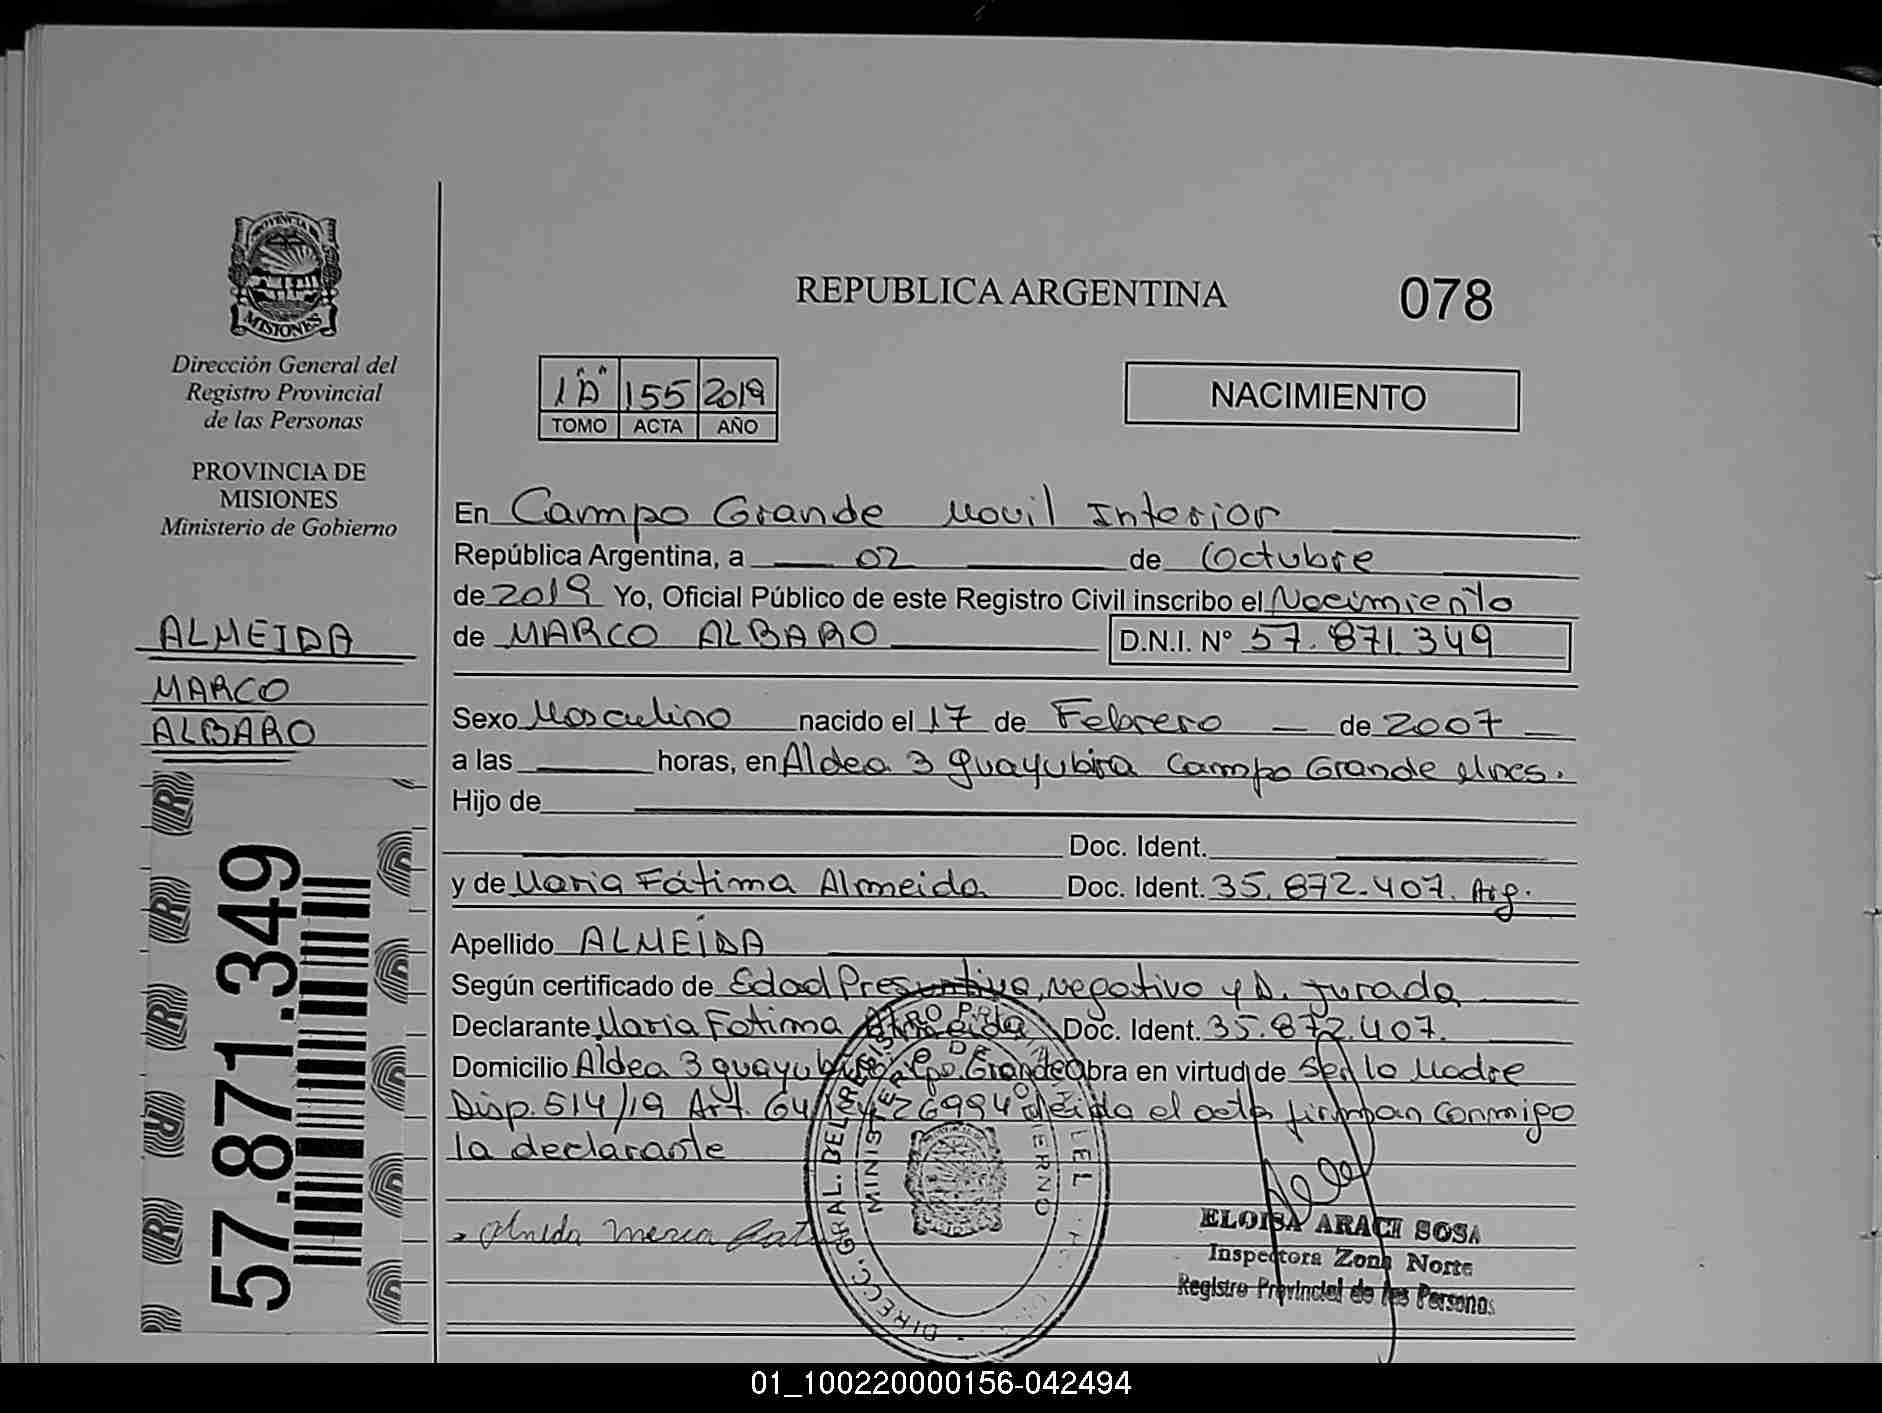 PROVINCIA DE
MISIONES
Dirección General del
Registro Provincial
de las Personas
PROVINCIA DE
MISIONES
Ministerio de Gobierno
ALMEIDA
MARCO
ALBARO
57.871.349
REPUBLICA ARGENTINA
078
1"A" 155 2019
TOMO ACTA AÑO
NACIMIENTO
En Campo Grande Movil Interior
República Argentina, a 02 de Octubre
de 2019 Yo, Oficial Público de este Registro Civil inscribo el Nacimiento
de MARCO ALBARO D.N.I. N° 57.871.349
Sexo Masculino nacido el 17 de Febrero de 2007
a las horas, en Aldea 3 guayubira Campo Grande Mnes.
Hijo de
Doc. Ident.
y de Maria Fátima Almeida Doc. Ident. 35.872.407. Arg.
Apellido ALMEÍDA
Según certificado de Edad Presuntiva, negativo y D. Jurada
Declarante Maria Fatima Almeida Doc. Ident. 35.872.407.
Domicilio Aldea 3 guayubira Cpo. Grande Obra en virtud de Ser la Madre
Disp. 514/19 Art. 64 Ley 26994 leida el acta firman conmigo
la declarante
DIREC. GRAL. DEL REGISTRO
MINISTERIO DE GOBIERNO
ELOISA ARACI SOSA
Inspectora Zona Norte
Registro Provincial de las Personas
01_100220000156-042494